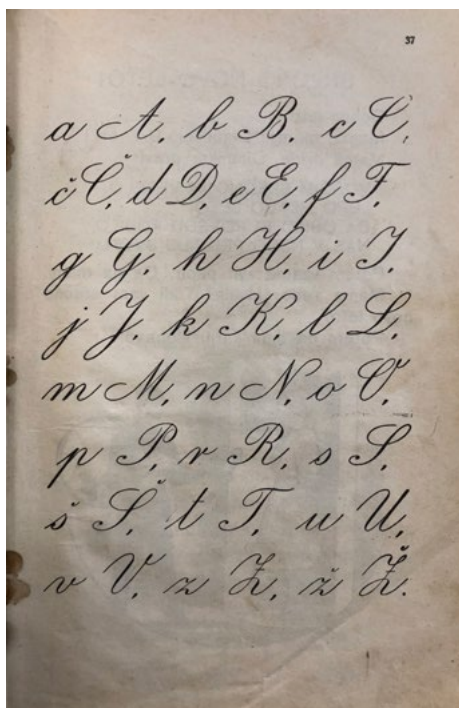 37
a A, b B, c C,
č Č, d D, e E, f F,
g G, h H, i I,
j J, k K, l L,
m M, n N, o O,
p P, r R, s S,
š Š, t T, u U,
v V, z Z, ž Ž.